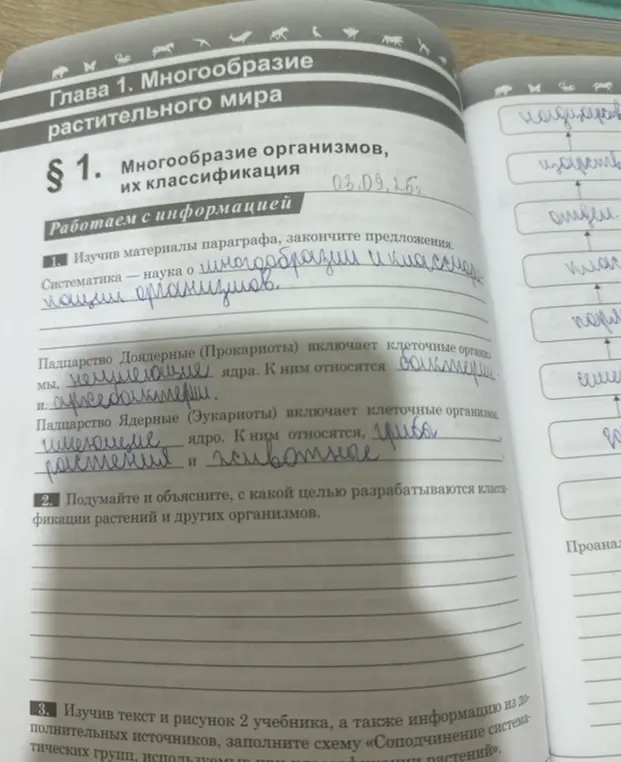 Глава 1. Многообразие
растительного мира
§ 1. Многообразие организмов,
их классификация
03.09.25г
Работаем с информацией
1. Изучив материалы параграфа, закончите предложения.
Систематика — наука о многообразии и классифи-
кации организмов.
Надцарство Доядерные (Прокариоты) включает клеточные организ-
мы, неимеющие ядра. К ним относятся бактерии
и архебактерии.
Надцарство Ядерные (Эукариоты) включает клеточные организмы,
имеющие ядро. К ним относятся, грибы
растения и животное
2. Подумайте и объясните, с какой целью разрабатываются класси-
фикации растений и других организмов.
3. Изучив текст и рисунок 2 учебника, а также информацию из до-
полнительных источников, заполните схему «Соподчинение система-
тических групп, используемых при классификации растений».
надцарств
царств
отдел
клас
Проана